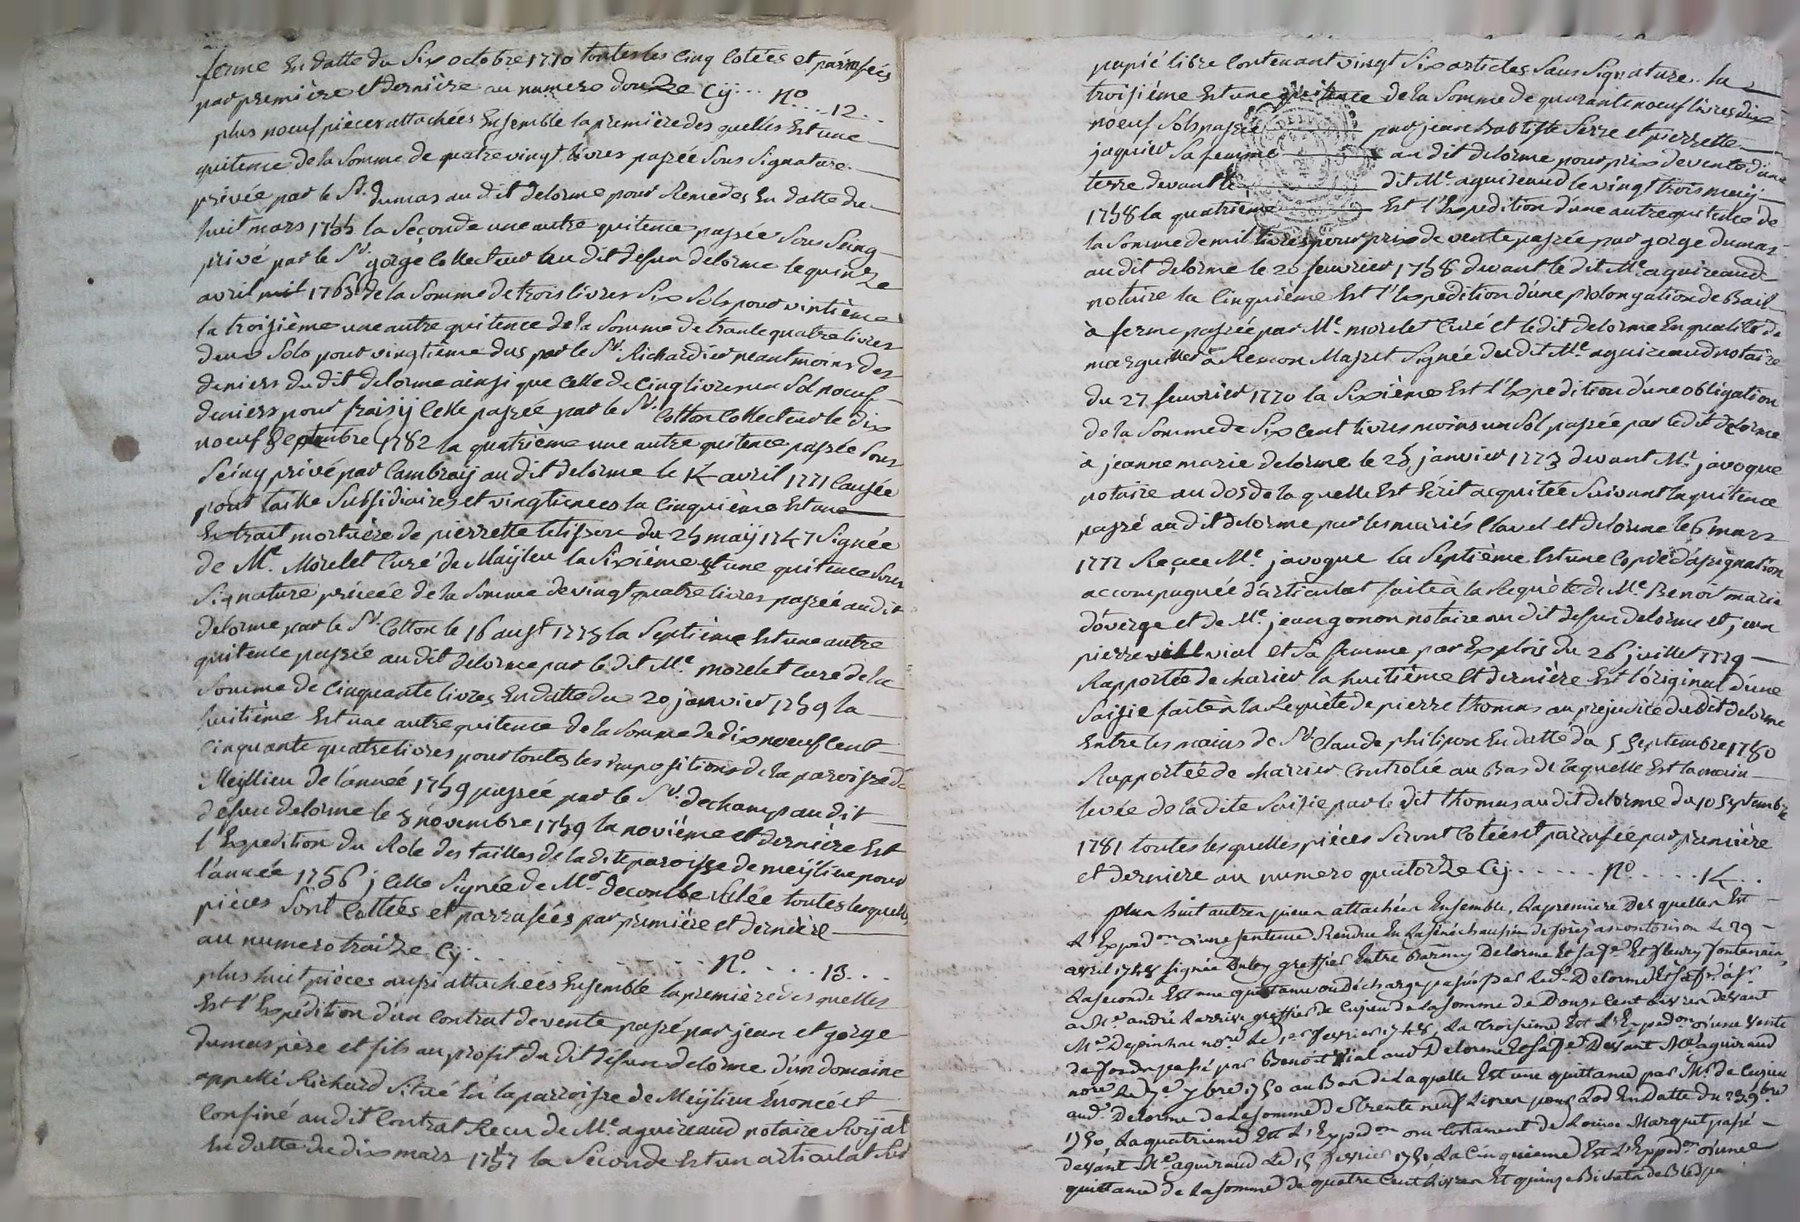 ferme En datte du Six octobre 1770 toutes les Cinq Cotées et parrafées
par première et dernière au numero douze Cy... N.o ... 12 ...
plus noeuf pieces attachées Ensemble la première des quelles Est une
quitence de la Somme de quatre vingt livres passée Sous Signature
privée par le Sr. Dumas au dit delorme pour Remedes En datte du
huit mars 1755 la Seconde une autre quitence passée Sous Seing
privé par le Sr gorge Collecteur au dit defun delorme le quinze
avril 1763 de la Somme de trois livres Six Sols pour vintième
la troisième une autre quitence de la Somme de trante quatre livres
deux Sols pour vingtième dus par le Sr. Richardier neantmoins des
deniers du dit delorme ainsi que Celle de Cinq livres un Sol noeuf
deniers pour frais y Celle passée par le Sr. Cotton Collecteur le dix
noeuf Septembre 1782 la quatrième une autre quitence passée Sous
Seing privé par Cambray au dit delorme le 14 avril 1771 Causée
pour taille Subsidiaires et vingtiences la Cinquième Est une
Extrait mortuère de pierrette telisson du 25 maij 1747 Signée
de Mr. Morelet Curé de Maylieu la Sixième Est une quitence Sous
Signature privée de la Somme de vingt quatre livres passée au dit
delorme par le Sr Cotton le 16 aust 1775 la Septième Est une autre
quitence passée au dit delorme par le dit Mr. morelet Curé de la
Somme de Cinquante livres En datte du 20 janvier 1759 la
huitième Est une autre quitence de la Somme de dix noeuf Cent
Cinquante quatre livres pour toutes les impositions de la paroisse de
Meyllieu de l'année 1759 passée par le Sr. dechamp au dit
defun delorme le 5 novembre 1759 la novième et dernière Est
l'Expedition du Role des tailles de la dite paroisse de meylieu pour
l'année 1756 j Celle Signée de Mr decombe toutes lesquelles
pièces Sont Cottées et parrafées par première et dernière
au numero traize Cy ........ N.o .... 13 ...
plus huit pièces aussi attachées Ensemble la première des quelles
Est l'Expédition d'un Contrat de vente passé par jean et gorge
dumas père et fils au profit du dit défun delorme d'un domaine
appellé Richard Situé En la parroisse de Meylieu Enoncé et
Confiné au dit Contrat Recu de Me. aguiraud notaire Royal
En datte du dix mars 1757 la Seconde Est un articulat Sur
papié libre Contenant vingt Six articles Sans Signature. la
troisième Est une quitence de la Somme de quarante noeuf livres dix
noeuf Sols passée par jean Baptiste Serre et pierrette
jaquier Sa femme au dit delorme pour prix de vente d'une
terre devant le dit Me. aguireaud le vingt trois maij
1758 la quatrième Est l'Expedition d'une autre quitence de
la Somme de mil livres pour prix de vente passée par gorge dumas
au dit delorme le 20 feuvrier 1758 devant le dit Me. aguireaud
notaire la Cinquième Est l'Expedition d'une prolongation de Bail
à ferme passée par Mr. morelet Curé et ledit delorme En qualité de
marguillier à Remon Masset Signée du dit Me. aguireaud notaire
du 27 feuvrier 1770 la Sixième Est l'Expedition d'une obligation
de la Somme de Six Cent livres moins un Sol passée par ledit delorme
à jeanne marie delorme le 25 janvier 1773 devant Me. javogue
notaire au dos de la quelle Est Ecrit acquitée Suivant la quitence
passé au dit delorme par les mariés Clavel et delorme le 6 mars
1777 Reçue Me. javogue la Septième Est une Copie d'assignation
accompagnée d'articulat faite à la Requête de Me. Benoit marie
doverge et de Me. jean gonon notaire au dit defun delorme et jean
pierre vial et Sa femme par Exploit du 26 juillet 1779
Rapportée de charier la huitième Et dernière Est l'original d'une
Saisie faite à la Requète de pierre thomas au préjudice du dit delorme
Entre les mains de Sr. Claude philipon En datte du 5 Septembre 1780
Rapportée de charier Controlée au Bas de laquelle Est la main
levée de la dite Saisie par le dit thomas au dit delorme du 10 Septembre
1781 toutes les quelles pièces Seront Cotées et parrafée par première
et dernière au numero quatorze Cy ...... N.o .... 14 ..
plus huit autres pieces attachées Ensemble, La premiere Des quelles Est
L'Expedon d'une Sentence Rendue En la Sénéchaussée de forès a montbrison Le 29
avril 1748 signée Duby greffier Entre Delorme Et sa fe Et fleury fontenais
La seconde Est une quittance ou décharge passée par Led. Delorme Et sa fe
a Me andré Larrive greffier de Cuzieu de la somme de Douze Cent Livres devant
Me Depinhac nore Le 1er fevrier 1748, La Troisieme Est L'Expedon d'une vente
de fonds passé par Benoit Vial aud. Delorme Et sa fe Devant Me aguiraud
nore Le 7e 7bre 1750 au Bas de Laquelle Est une quittance par Mr de Cuzieu
aud. Delorme de La somme de Trente neuf Livres pour Lod En datte du 23 9bre
1750, La quatrieme Est L'Expedon du testament de Louise Marquet passé
devant Me aguiraud Le 15 fevrier 1751 La Cinquieme Est L'Expedon d'une
quittance de La somme de quatre Cent Livres Et quinze Bichets de Bled